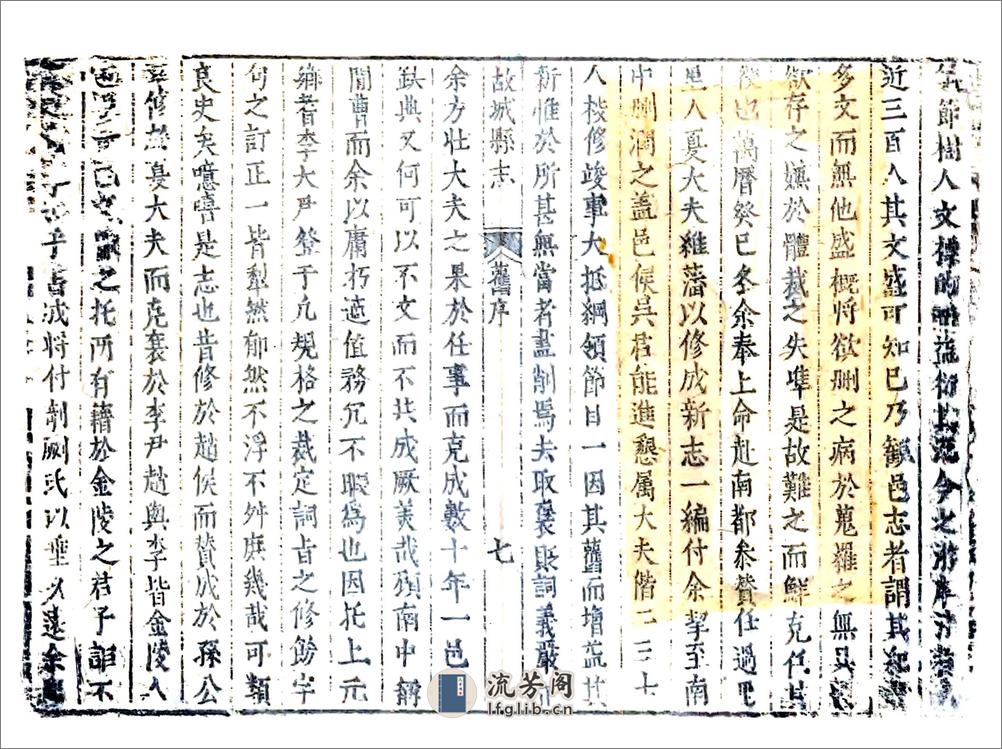 節樹人文標的
近三百人其文盛可知已乃觀邑志者謂其紀
多文而無他盛概將欲刪之病於蒐羅之無
欲存之嫌於體裁之失準是故難之而鮮克任其
役也萬曆癸巳冬余奉上命赴南都參贊任過里
里人夏大夫維藩以修成新志一編付余挈至南
中刪潤之蓋邑侯吳君能進懇属大夫偕二三士
人授修竣事大抵綱領節目一因其舊而增益其
新惟於所甚無當者盡削焉去取褒貶詞義嚴
故城縣志 舊序 七
余方壯大夫之果於任事而克成數十年一邑
缺典又何可以不文而不共成厥美哉顧南中稱
閒曹而余以庸朽適值務冗不暇為也因托上元
鄉耆李大尹登于凡規格之裁定詞旨之修飭字
句之訂正一皆犁然郁然不浮不舛庶幾哉可類
良史矣噫嘻是志也昔修於趙侯而賛成於孫公
修於夏大夫而克襄於李尹趙與李皆金陵人
之托所有藉於金陵之君子詎不
乎書成將付剞劂氏以垂久遠余
流芳阁
lfglib.cn